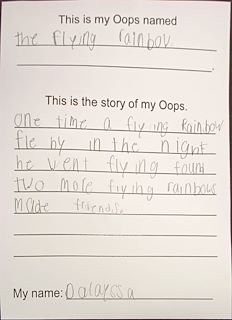 This is my Oops named
the flying rainbow
This is the story of my Oops.
One time a flying Rainbow
fle by in the night
he went flying found
two more flying rainbows
made friends
My name: Dalayssa